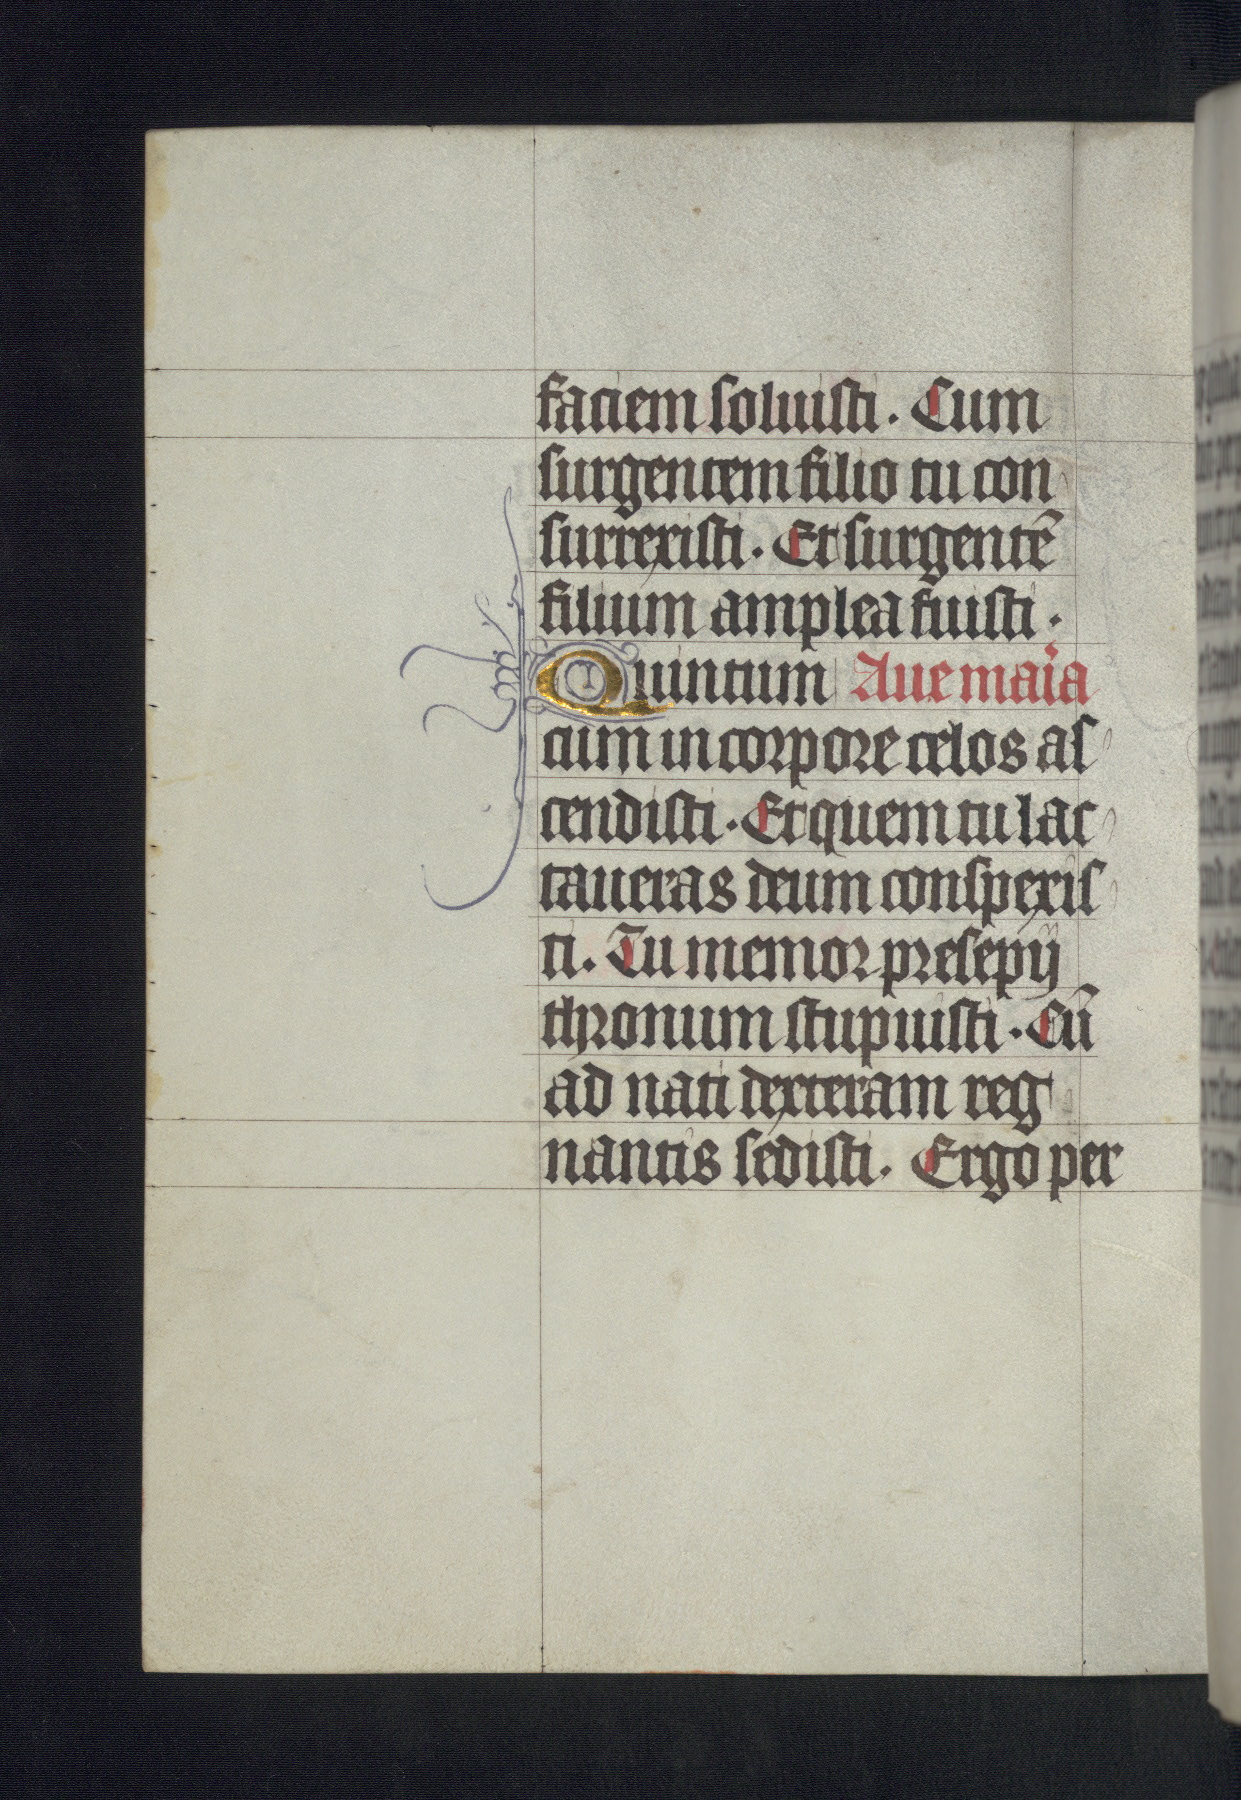 faciem soluisti. Cum
surgentem filio tu con
surrexisti. Et surgentē
filium amplea fuisti.
Quintum Aue maīa
cum in corpore celos as
cendisti. Et quem tu lac
taueras deum conspexis
ti. Tu memor presepij
thronum stupuisti. Cū
ad nati dexteram reg
nantis sedisti. Ergo per